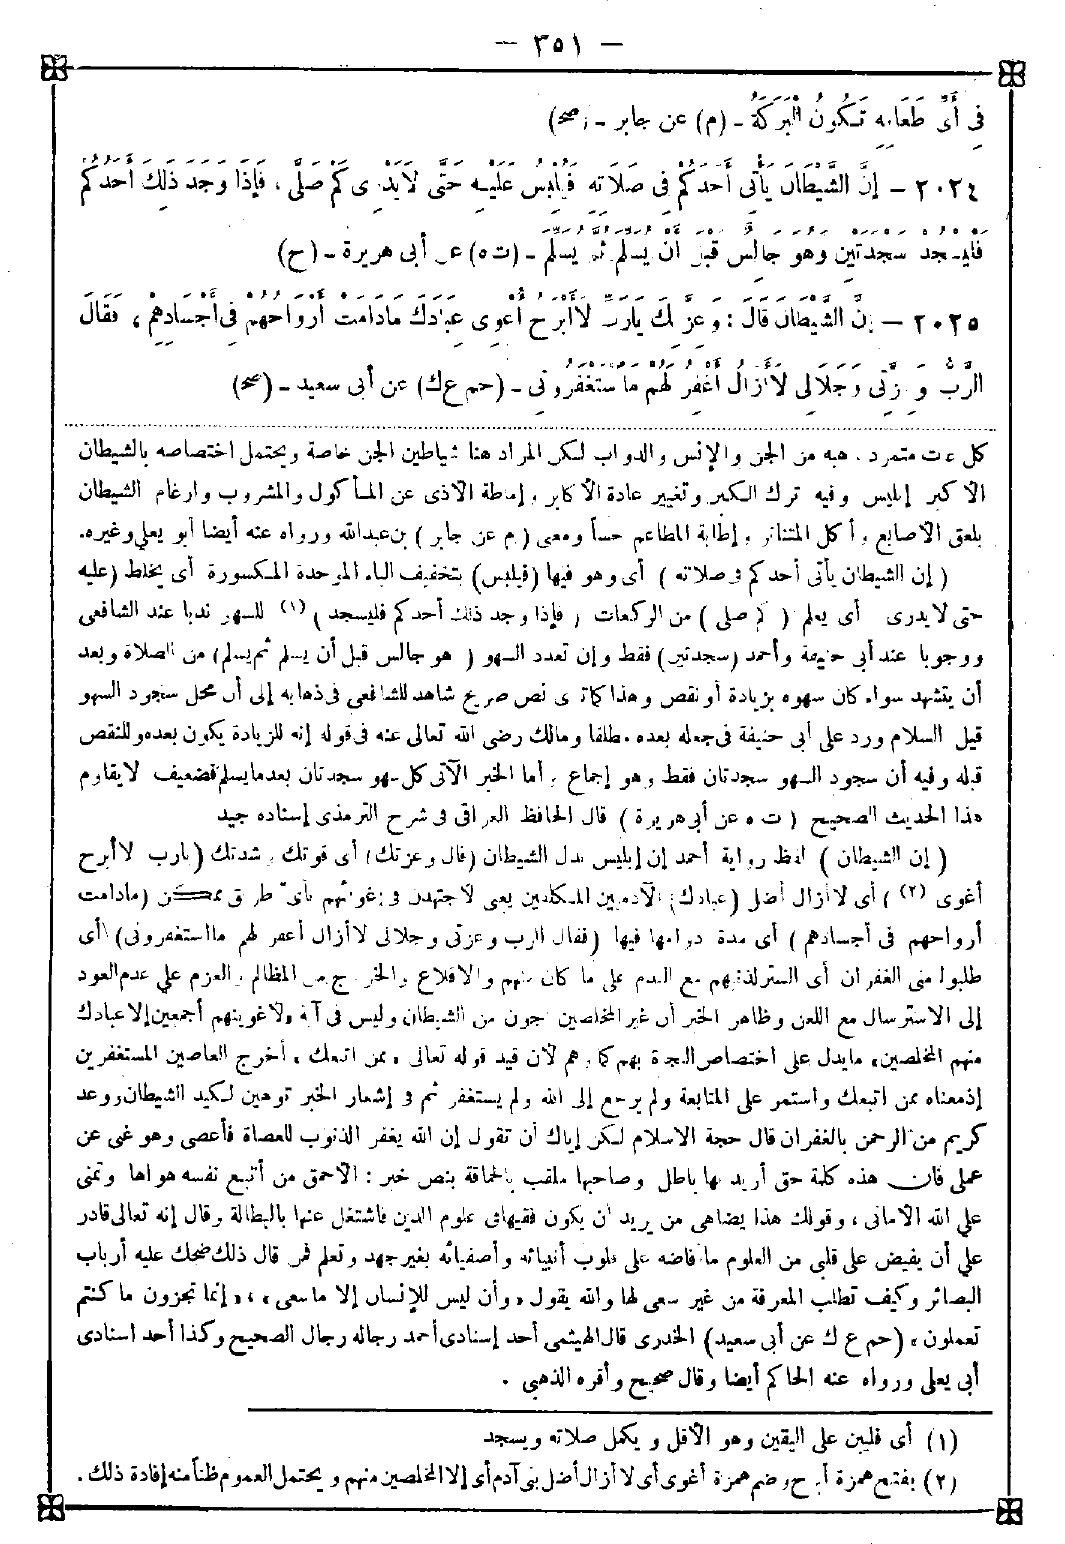 — ٣٥١ —
فِى أَىِّ طَعَامِهِ تَكُونُ الْبَرَكَةُ - (م) عن جابر - (صح)
٢٠٢٤ - إِنَّ الشَّيْطَانَ يَأْتِى أَحَدَكُمْ فِى صَلَاتِهِ فَيَلْبِسُ عَلَيْهِ حَتَّى لَا يَدْرِى كَمْ صَلَّى، فَإِذَا وَجَدَ ذَلِكَ أَحَدُكُمْ
فَلْيَسْجُدْ سَجْدَتَيْنِ وَهُوَ جَالِسٌ قَبْلَ أَنْ يُسَلِّمَ ثُمَّ يُسَلِّمُ - (ت ه) عن أبى هريرة - (ح)
٢٠٢٥ - إِنَّ الشَّيْطَانَ قَالَ: وَعِزَّتِكَ يَارَبِّ لَا أَبْرَحُ أُغْوِى عِبَادَكَ مَادَامَتْ أَرْوَاحُهُمْ فِى أَجْسَادِهِمْ، فَقَالَ
الرَّبُّ وَعِزَّتِى وَجَلَالِى لَا أَزَالُ أَغْفِرُ لَهُمْ مَا اسْتَغْفَرُونِى - (حم ع ك) عن أبى سعيد - (صح)
كل عات متمرد . هبه من الجن والإنس والدواب لكن المراد هنا شياطين الجن خاصة ويحتمل اختصاصه بالشيطان
الأكبر إبليس وفيه ترك الكبر وتغيير عادة الأكابر وإماطة الأذى عن المأكول والمشروب وارغام الشيطان
بلعق الأصابع وأكل المتناثر وإطابة المطاعم حساً ومعنى (م عن جابر) بن عبدالله ورواه عنه أيضا أبو يعلى وغيره.
(إن الشيطان يأتى أحدكم فى صلاته) أى وهو فيها (فيلبس) بتخفيف الباء الموحدة المكسورة أى يخلط (عليه
حتى لا يدرى) أى يعلم (كم صلى) من الركعات (فإذا وجد ذلك أحدكم فليسجد) (١) للسهو ندبا عند الشافعى
ووجوبا عند أبى حنيفة وأحمد (سجدتين) فقط وإن تعدد السهو (وهو جالس قبل أن يسلم ثم يسلم) من الصلاة وبعد
أن يتشهد سواء كان سهوه بزيادة أو نقص وهذا كما ترى نص صريح شاهد للشافعى فى ذهابه إلى أن محل سجود السهو
قبل السلام ورد على أبى حنيفة فى جعله بعده مطلقا ومالك رضى الله تعالى عنه فى قوله إنه للزيادة يكون بعده وللنقص
قبله وفيه أن سجود السهو سجدتان فقط وهو إجماع وأما الخبر الآتى كل سهو سجدتان بعد ما يسلم فضعيف لا يقاوم
هذا الحديث الصحيح (ت ه عن أبى هريرة) قال الحافظ العراقى فى شرح الترمذى إسناده جيد
(إن الشيطان) لفظ رواية أحمد إن إبليس بدل الشيطان (قال وعزتك) أى قوتك وشدتك (يارب لا أبرح
أغوى (٢)) أى لا أزال أضل (عبادك) الآدميين المكلفين يعنى لأجتهدن فى إغوائهم بأىّ طريق ممكن (مادامت
أرواحهم فى أجسادهم) أى مدة دوامها فيها (فقال الرب وعزتى وجلالى لا أزال أغفر لهم ما استغفرونى) أى
طلبوا منى الغفران أى الستر لذنبهم مع الندم على ما كان منهم والإقلاع والخروج من المظالم والعزم على عدم العود
إلى الاسترسال مع اللعين وظاهر الخبر أن غير المخلصين ناجون من الشيطان وليس فى آية «لأغوينهم أجمعين إلا عبادك
منهم المخلصين» ما يدل على اختصاص النجاة بهم كما وهم لأن قيد قوله تعالى «ممن اتبعك» أخرج العاصين المستغفرين
إذ معناه ممن اتبعك واستمر على المتابعة ولم يرجع إلى الله ولم يستغفر ثم فى إشعار الخبر توهين لكيد الشيطان ووعد
كريم من الرحمن بالغفران قال حجة الاسلام لكن إياك أن تقول إن الله يغفر الذنوب للعصاة فأعصى وهو غنى عن
عملى فان هذه كلمة حق أريد بها باطل وصاحبها ملقب بالحماقة بنص خبر: الأحمق من أتبع نفسه هواها وتمنى
على الله الأمانى، وقولك هذا يضاهى من يريد أن يكون فقيها فى علوم الدين فاشتغل عنها بالبطالة وقال إنه تعالى قادر
على أن يفيض على قلبى من العلوم ما فاضه على قلوب أنبيائه وأصفيائه بغير جهد وتعلم فمن قال ذلك ضحك عليه أرباب
البصائر وكيف تطلب المعرفة من غير سعى لها والله يقول «وأن ليس للإنسان إلا ما سعى»، «إنما تجزون ما كنتم
تعملون» (حم ع ك عن أبى سعيد) الخدرى قال الهيثمى أحد إسنادى أحمد رجاله رجال الصحيح وكذا أحد اسنادى
أبى يعلى ورواه عنه الحاكم أيضا وقال صحيح وأقره الذهبى .
(١) أى فليبن على اليقين وهو الأقل ويكمل صلاته ويسجد
(٢) بفتح همزة أبرح وضم همزة أغوى أى لا أزال أضل بنى آدم أى إلا المخلصين منهم ويحتمل العموم ظناً منه إفادة ذلك .